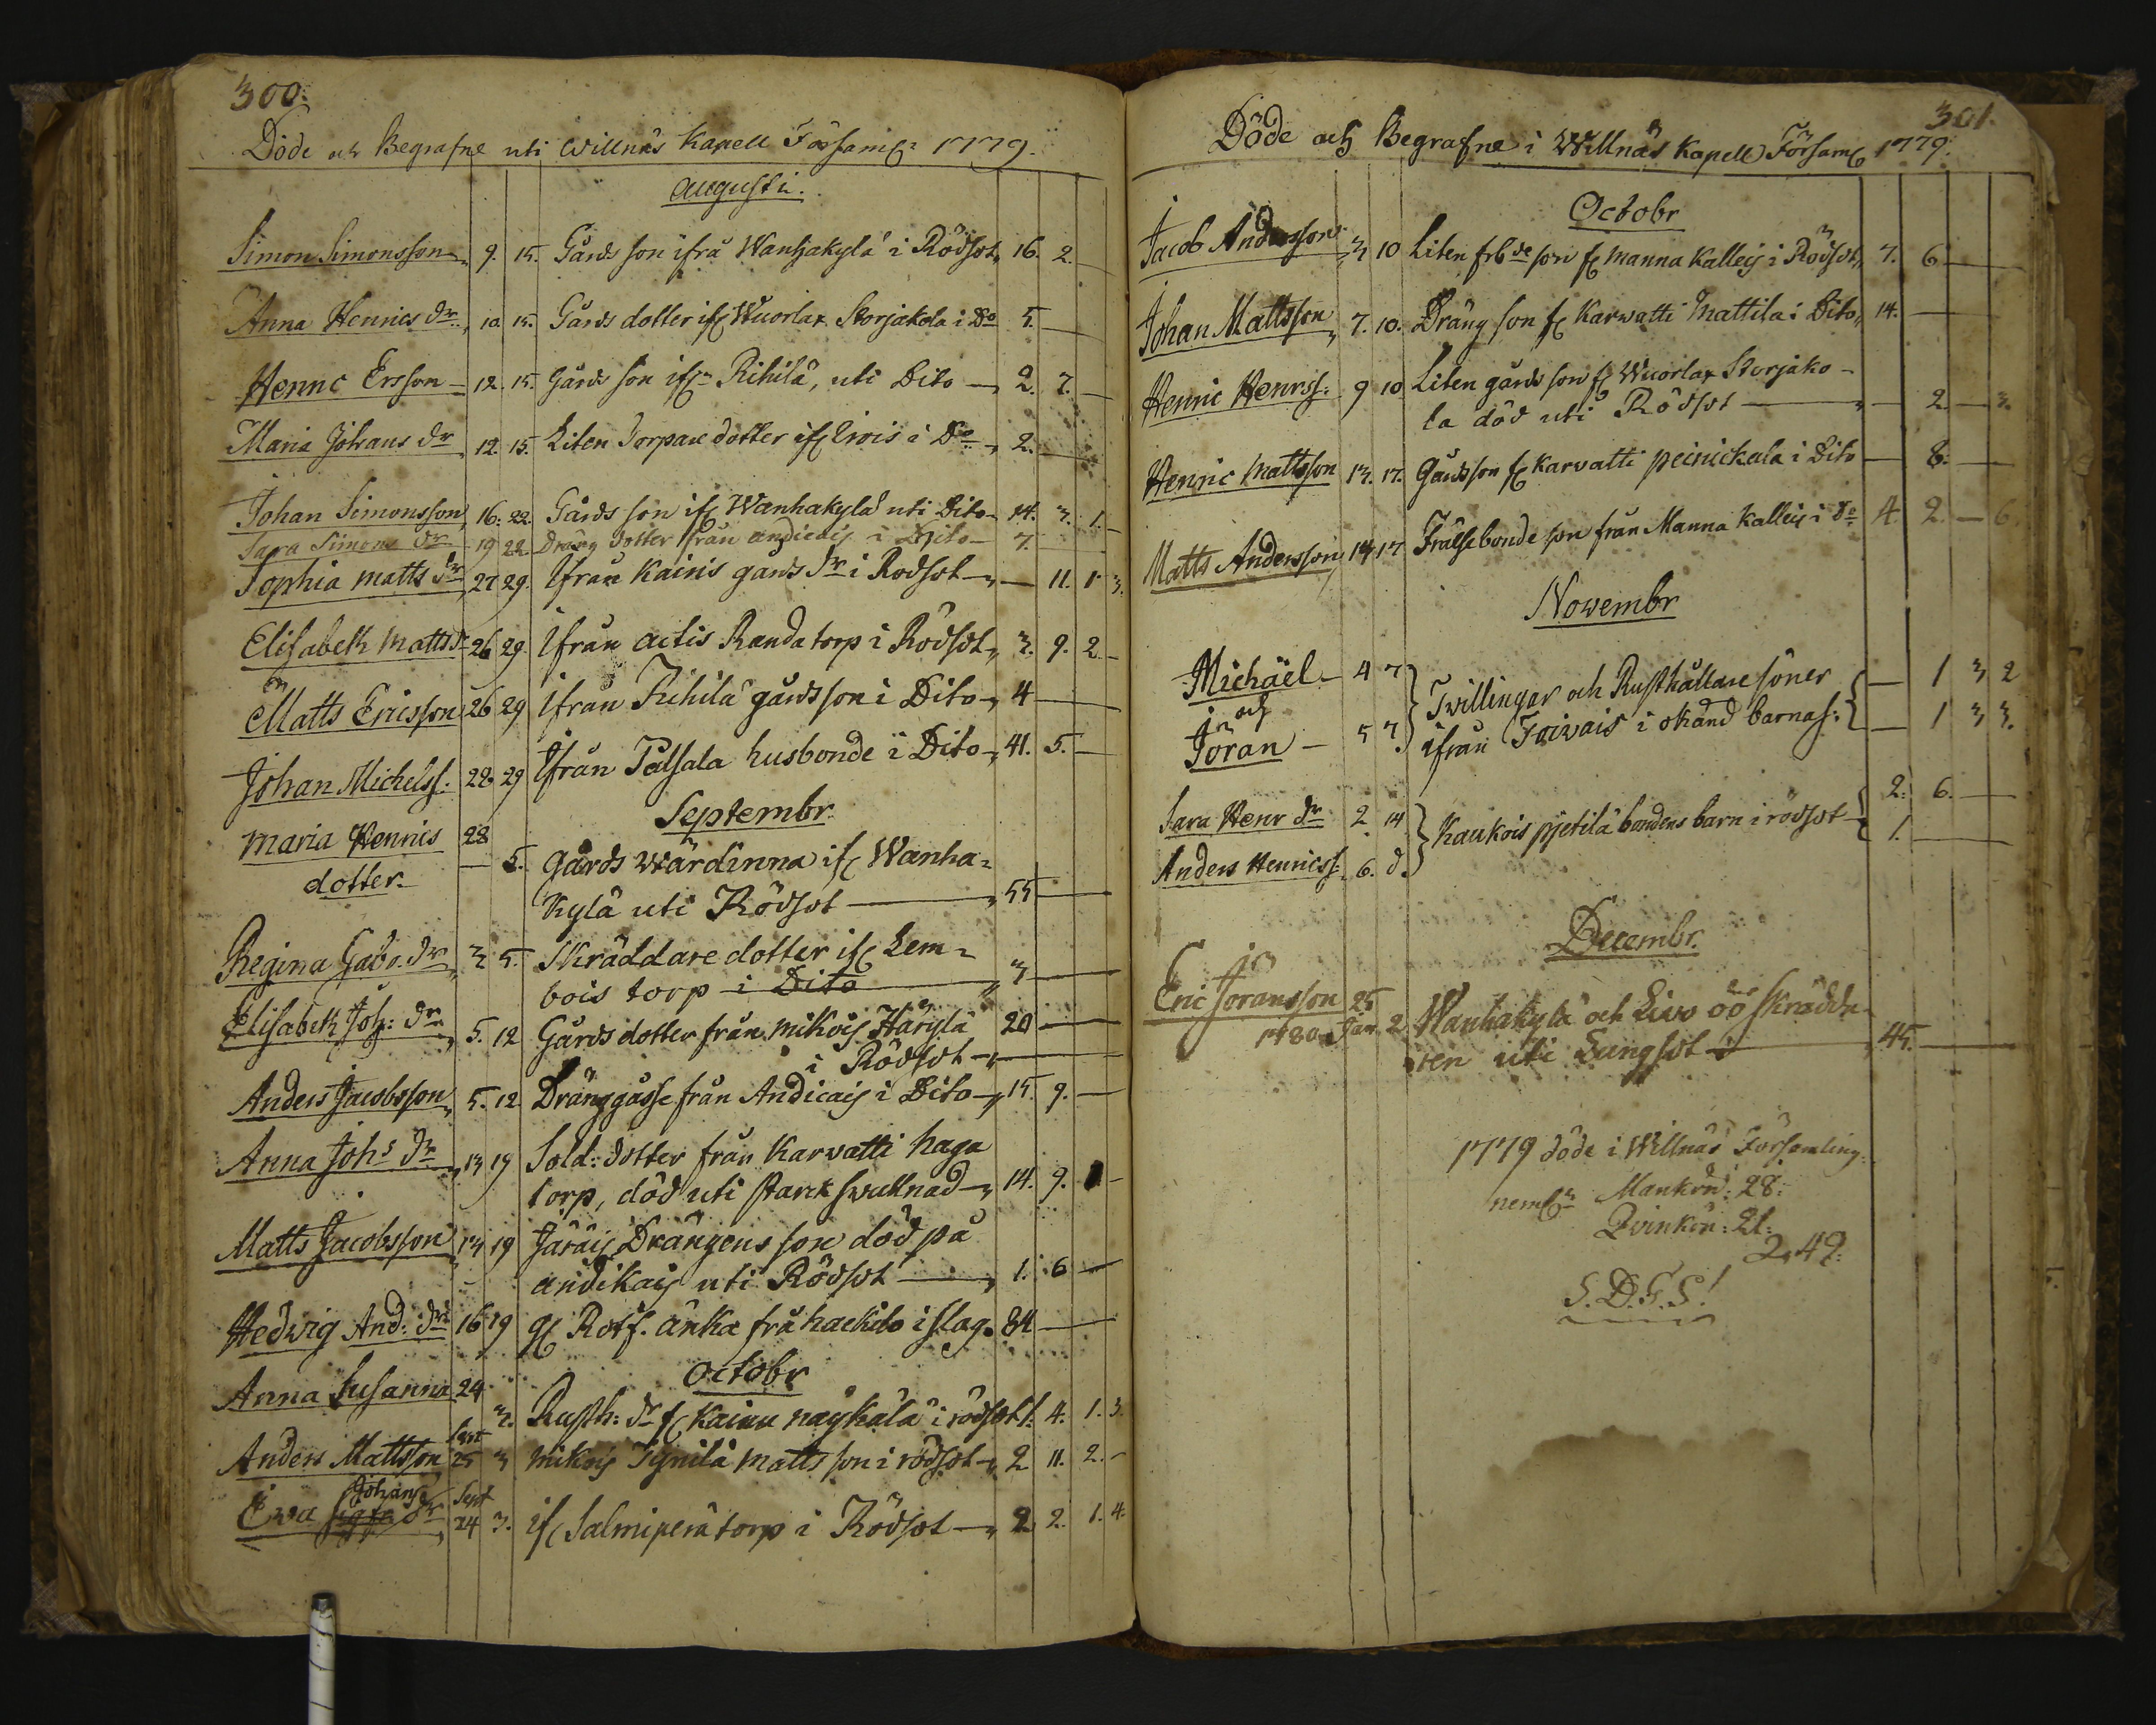 300.
Döde och Begrafne uti Willnäs Kapell Församl: 1779.
Augusti.
Simon Simonsson 9. 15. Gårds son ifrå Wanhakylä i Rödsot 16. 2. —
Anna Henrics dr. 10. 15. Gårds dotter ifr Wuorlax Storjakola i Do 5. —
Henric Ersson — 12. 15. Gårds son ifrn Rihilä, uti Dito — 2. 7. —
Maria Johans dr 12. 15. Liten Torpare dotter ifr Erois i Do 2. —
Johan Simonsson 16. 22. Gårds son ifr Wanhakylä uti Dito 14. 3. 1. —
Sara Simons dr 19 22 Dräng dotter från andicais i Dito — 7. —
Sophia Matts dr 27 29. Ifrån Kairis gards dr i Rödsot — 11. 1 3.
Elisabeth Matts d 26 29. Ifrån actis Randa torp i Rödsot 3. 9. 2 —
Matts Ericsson 26 29 Ifrån Rihilä gårdsson i Dito 4 —
Johan Michelss: 28 29 Ifrån Palsala husbonde i Dito 41. 5. —
Septembr.
Maria Henrics 28
dotter — 5. Gårds wärdinna ifr Wanha=
kylä uti Rödsot — 55 —
Regina Gabr. dr 3 5. Skräddare dotter ifr Lem=
bois torp i Dito 3 —
Elisabeth Joh: dr 5. 12 Gårds dotter från Mikois Härjylä 20 —
i Rödsot —
Anders Jacobsson 5. 12 Dränggåsse från Andicais i Dito 15. 9. —
Anna Johs dr 13 19 Sold: dotter från Karvatti haga
torp, död uti starck swullnad 14. 9. —
Matts Jacobsson 14 19 Järäis Drängens son död på
andikais uti Rödsot — 1. 6 —
Hedwig And: dr 16 19 gl Rotf. änka frå hackilo i slag. 84 —
Octobr
Anna Susanna 24
3. Rusth: dr fr Kainu näykälä i rödsot 1. 4. 1. 3.
Anders Mattsson 25 3 Mikois Tynilä Matts son i rödsot 2 11. 2. —
Johans
Ewa dr Sept 24 3. ifr Salmiperä torp i Rödsot — 2 2. 1. 4.
301.
Döde och Begrafne i Willnäs Kapell Församl 1779.
Octobr
Jacob Andersson 3 10 Liten frbde son fr Manna Kalleis i Rödsot 7. 6 —
Johan Mattsson 7. 10. Dräng son fr Karwatti Mattila i Dito 14. —
Henric Henrss: 9 10 Liten gårds son fr Wuorlax Storjako-
la död uti Rödsot — 2 — 3.
Henric Mattsson 13. 17. Gårdsson fr Karvatti peinickala i Dito — 8. —
Matts Andersson 14 17 Frälsebonde son från Manna Kalleis i Do 4 2. — 6.
Novembr
Michäel — 4 7 Twillingar och Rusthållare söner — 1 3 2
och
Jöran — 5 7. ifrån Taivais i okänd barnas: — 1 3 3.
Sara Henr dr 2 14 Kaukois pjetilä bondens barn i rödsot 2. 6. —
Anders Henricss: 6. d. 1. —
Decembr.
Eric Jöransson 25 Wanhakylä och Livo öö skrädda
1780 Jan 2
ren uti Lungsot — 45. —
1779 döde i Willnäs Församling.
neml:n Mankön: 28:
Qvinkön: 21:
49:
S.D.G.S!